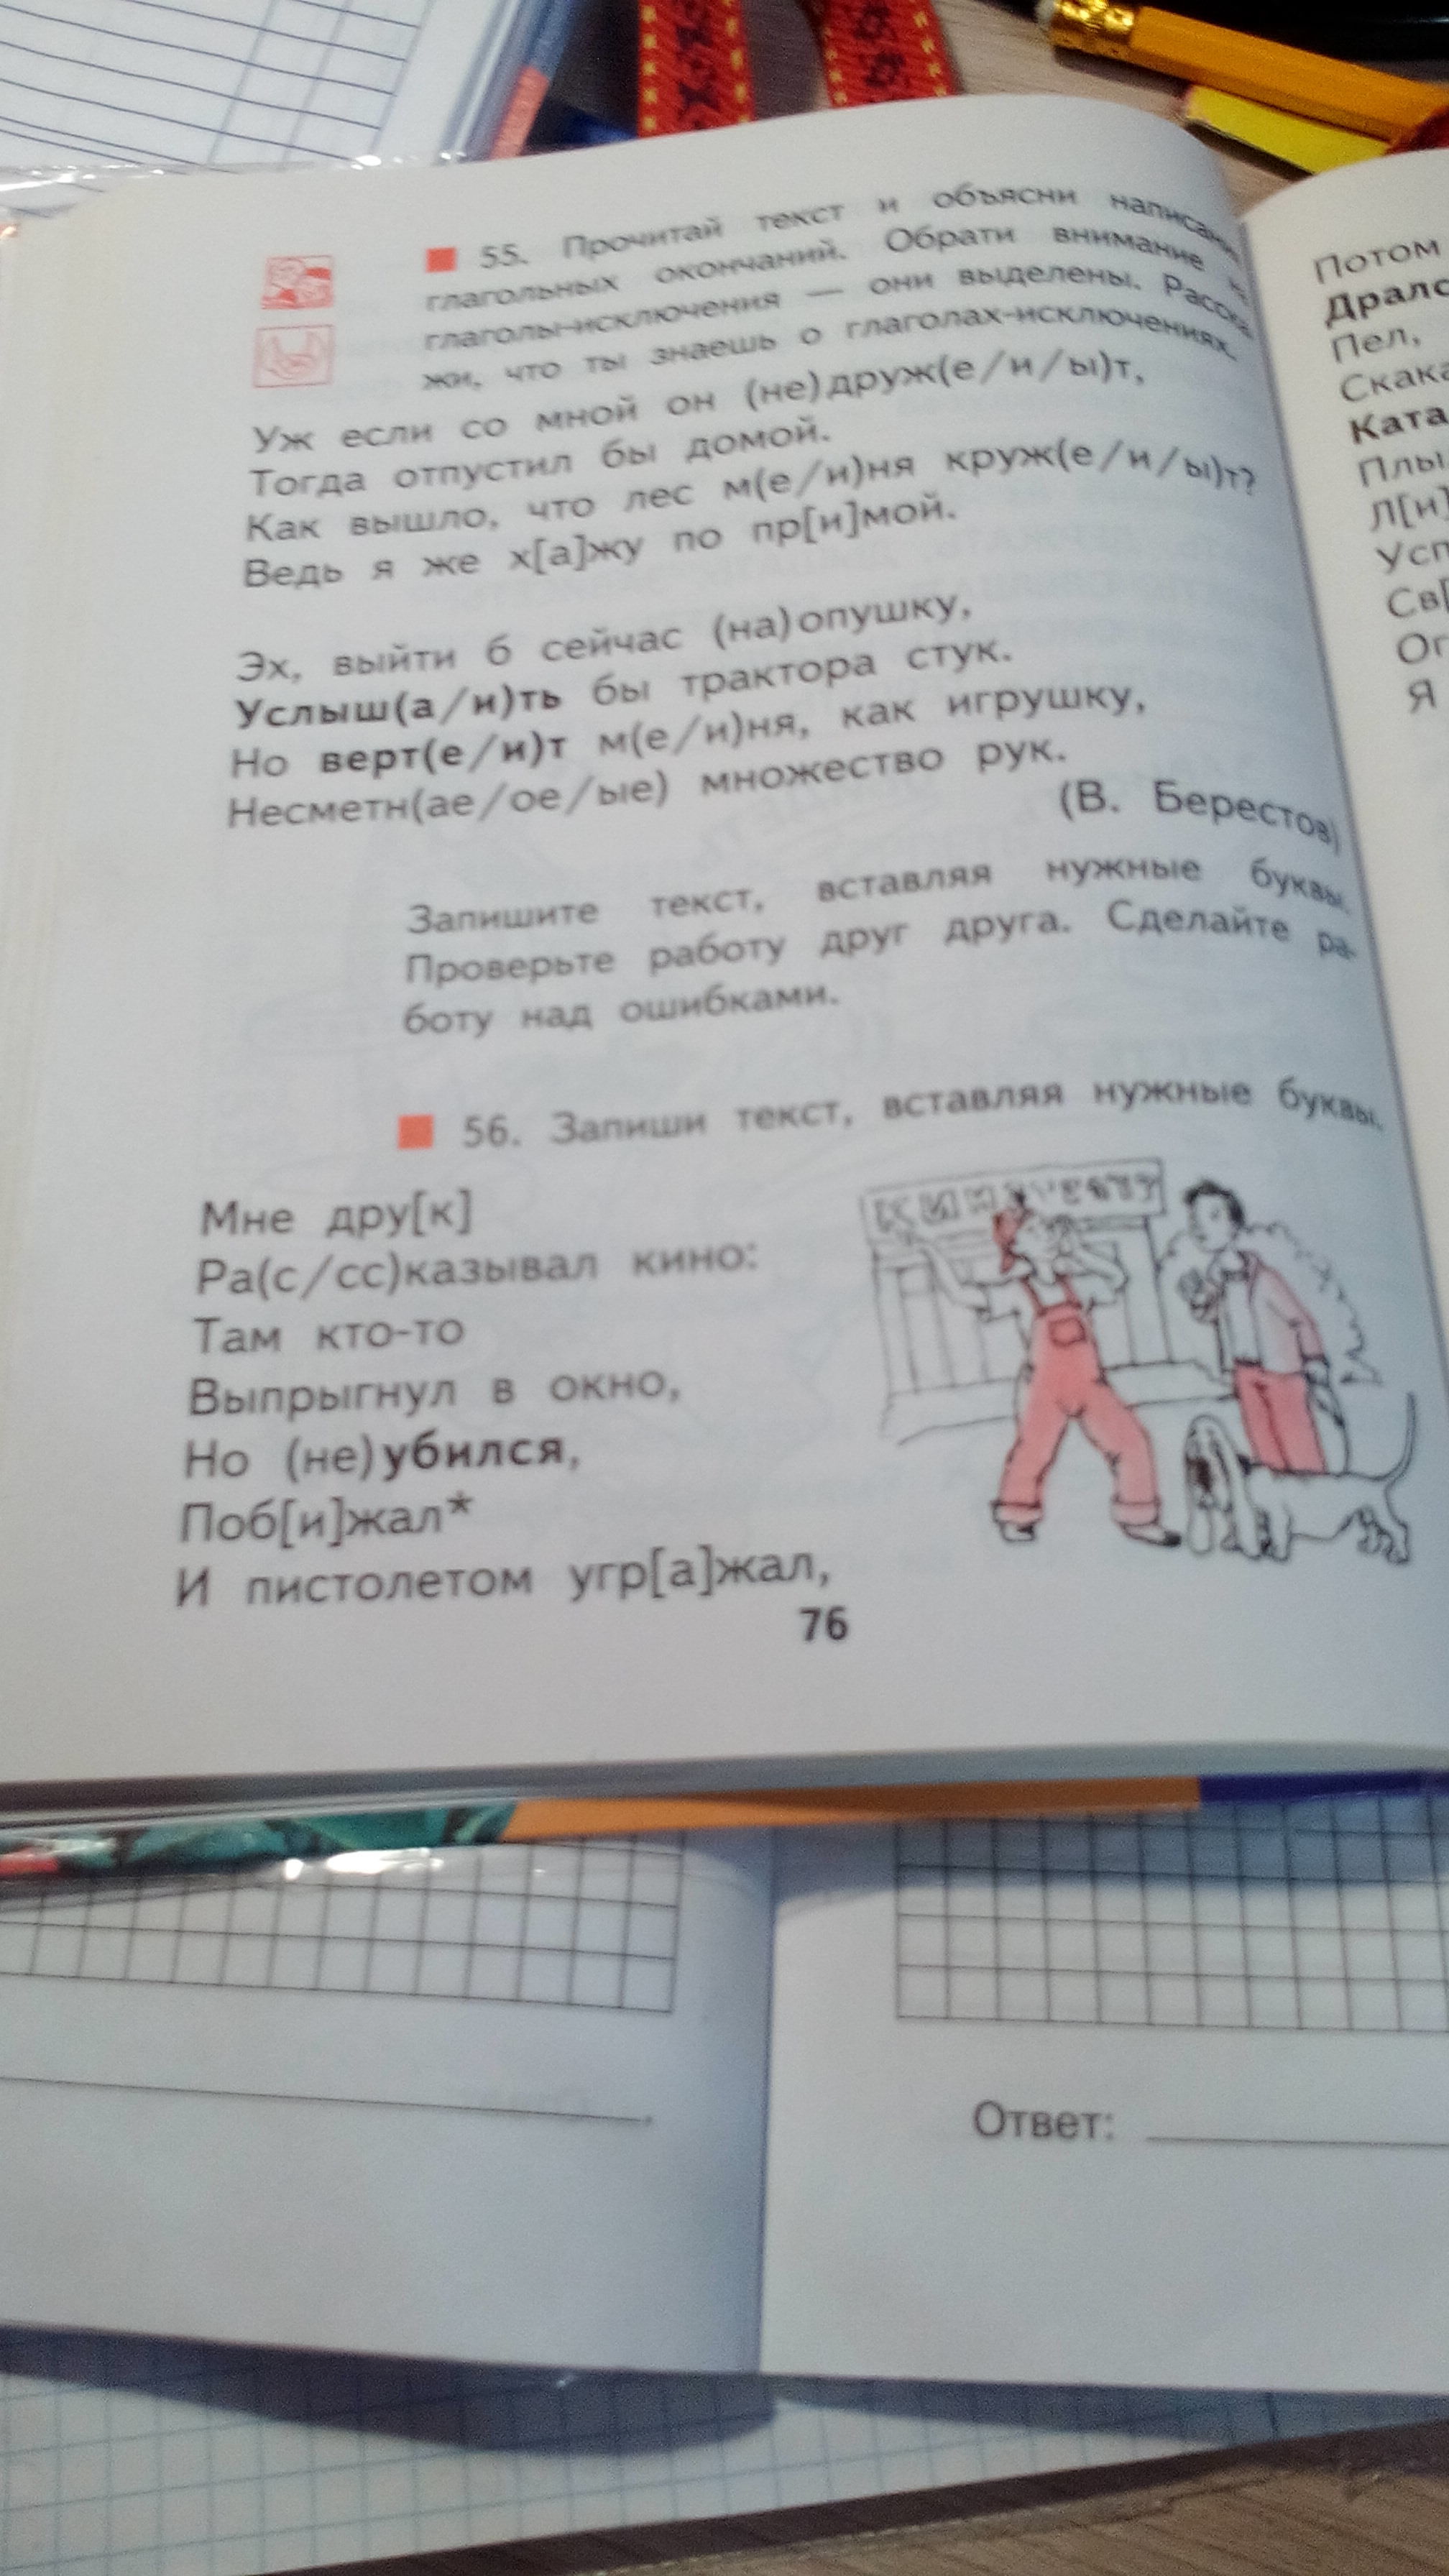 55. Прочитай текст и объясни
глагольных окончаний. Обрати внимание
глаголы-исключения — они выделены.
жи, что ты знаешь о глаголах-исключениях.
Уж если со мной он (не)друж(е/и/ы)т,
Тогда отпустил бы домой.
Как вышло, что лес м(е/и)ня круж(е/и/ы)т?
Ведь я же х[а]жу по пр[и]мой.
Эх, выйти б сейчас (на)опушку,
Услыш(а/и)ть бы трактора стук.
Но верт(е/и)т м(е/и)ня, как игрушку,
Несметн(ае/ое/ые) множество рук.
(В. Берестов)
Запишите текст, вставляя нужные буквы.
Проверьте работу друг друга. Сделайте ра-
боту над ошибками.
56. Запиши текст, вставляя нужные буквы.
Мне дру[к]
Ра(с/сс)казывал кино:
Там кто-то
Выпрыгнул в окно,
Но (не)убился,
Поб[и]жал*
И пистолетом угр[а]жал,
76
Потом
Пел,
Я
Ответ: